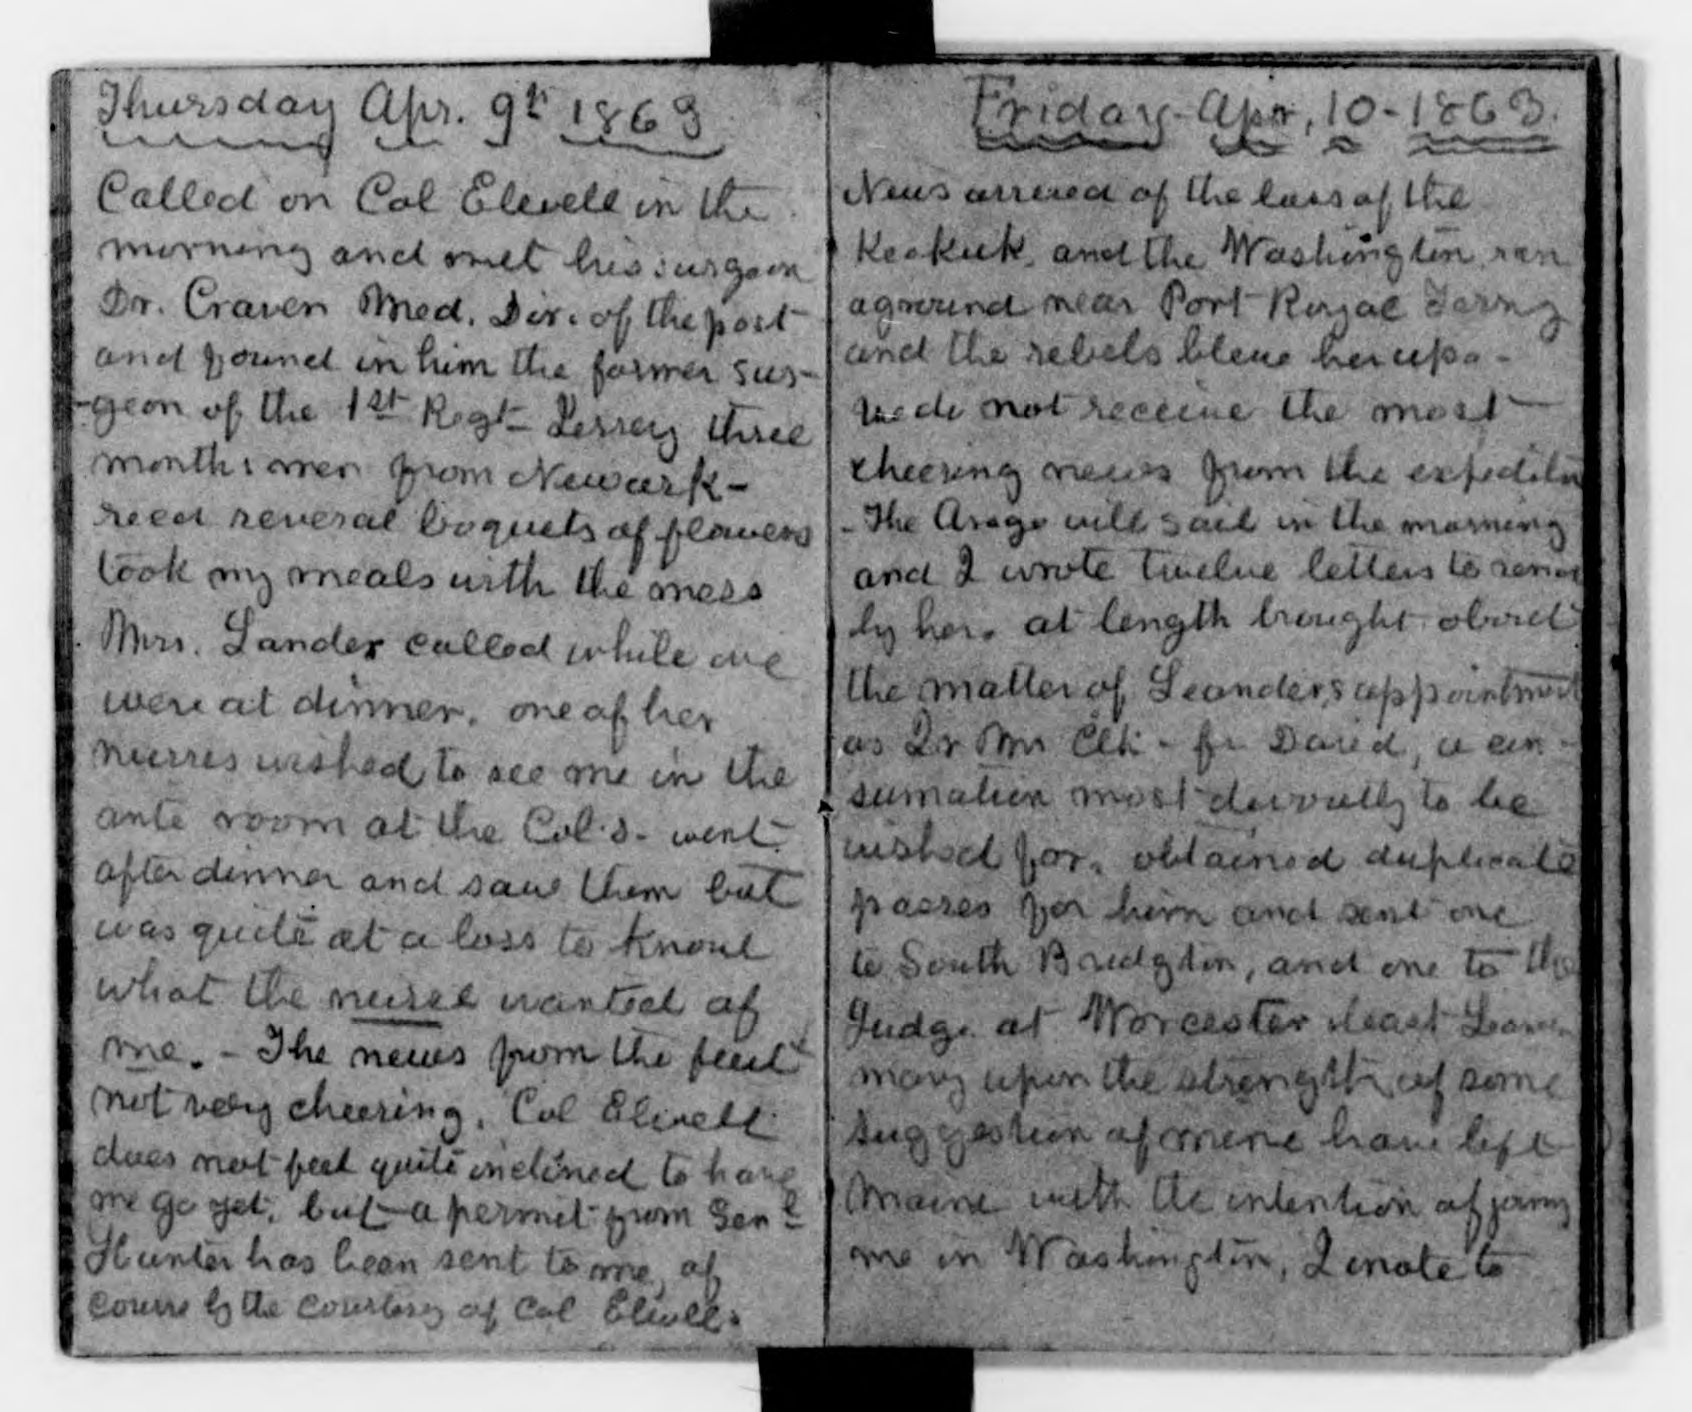 Thursday Apr. 9th 1863
Called on Col Elwell in the
morning and met his surgeon
Dr. Craven Med. Dir. of the post
and found in him the former sur-
-geon of the 1st Regt- Jersey three
months men from Newark -
recd several boquets of flowers
took my meals with the mess
Mrs. Lander called while we
were at dinner. one of her
nurses wished to see me in the
ante room at the Col's - went
after dinner and saw them but
was quite at a loss to know
what the nurse wanted of
me. - The news from the fleet
not very cheering. Col Elwell
does not feel quite inclined to have
me go yet, but a permit from Genl
Hunter has been sent to me, of
course by the courtesy of Col Elwell.
Friday - Apr, 10 - 1863.
News arrived of the loss of the
Keokuk, and the Washington ran
aground near Port Royal Ferry
and the rebels blew her up -
We do not receive the most
cheering news from the expeditn
- The Arago will sail in the morning
and I wrote twelve letters to send
by her. at length brought about
the matter of Leander's appointment
as Qr Mr Clk - for David, a con-
sumation most devoutly to be
wished for. obtained duplicate
passes for him and sent one
to South Bridgton, and one to the
Judge at Worcester least
may upon the strength of some
suggestion of mine have left
Maine with the intention of joing
me in Washington, I wrote to